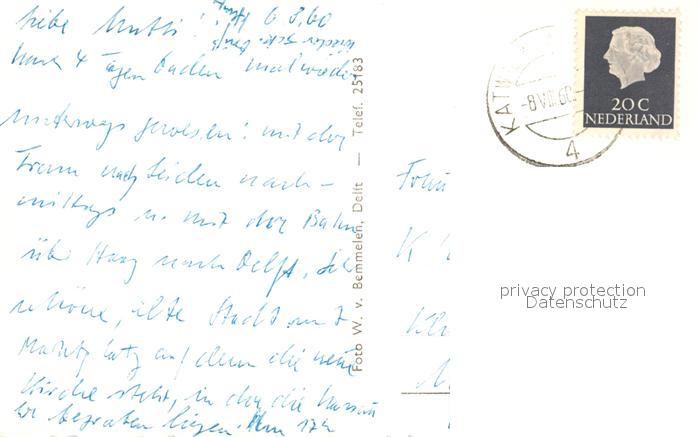 liebe Mutti! 6.8.60
nach 4 Tagen baden mal wieder
unterwegs gewesen: mit der
Tram nach Leiden nach-
mittags u. mit der Bahn
über Haag nach Delft,
schöne, alte Stadt mit
Marktplatz auf dem die neue
Kirche steht, in der die
begraben liegen. Um 17h
Foto W. v. Bemmelen, Delft — Telef. 25183
KATW
-8 VIII 60
4
20 C
NEDERLAND
privacy protection
Datenschutz